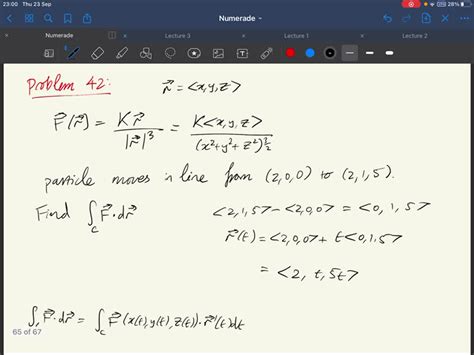 23:00 Thu 23 Sep
28%
Numerade
Numerade
Lecture 3
Lecture 1
Lecture 2
Problem 42:
r⃗ = <x,y,z>
F⃗(r⃗) = K r⃗ / |r⃗|³ = K<x,y,z> / (x²+y²+z²)^(3/2)
particle moves in line from (2,0,0) to (2,1,5).
Find ∫_C F⃗·dr⃗
<2,1,5>-<2,0,0> = <0,1,5>
r⃗(t) = <2,0,0> + t<0,1,5>
= <2, t, 5t>
∫_C F⃗·dr⃗ = ∫_C F⃗(x(t),y(t),z(t))·r⃗'(t)dt
65 of 67